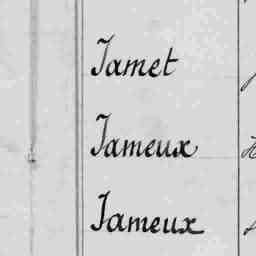 Jamet
Jameux
Jameux